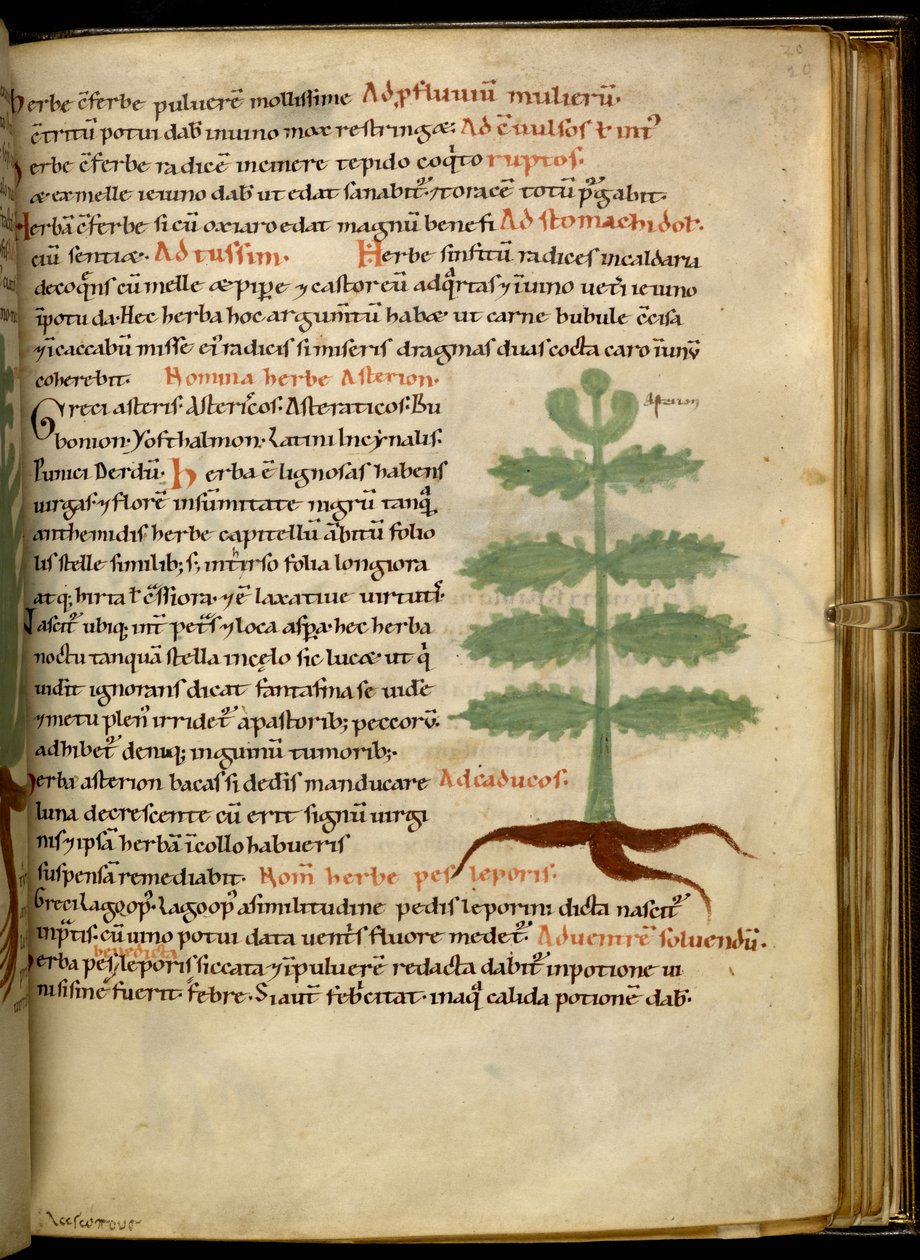 20
20
herbe c̄ferbe puluerē mollissime Ad ꝓfluuiū mulierū·
c̄tritū potui dab̄ in uino mox restringæ: Ad c̄uulsos ł int̄
erbe c̄ferbe radicē incinere tepido coq̄to ruptos·
æ ex melle ieiuno dab̄ ut edat sanabit᷑· ⁊ toracē totū p᷑gabit·
Herbā c̄ferbe si cū oxiaro edat magnū benefi Ad stomachi dol̄·
ciū sentiæ· Ad tussim· Herbe sinfitū radices in caldaria
decoq̄ns cū melle æ pip̄e ⁊ castoreū adq̄rtas ⁊ ī uino uet̄i ieiuno
ī potu da· Hec herba hoc argum̄tū habæ ut carne bubule c̄cisa
⁊ ī caccabū misse ei᷑ radicis si miseris dragmas duas cocta caro ī unū
coherebit· Nomina herbe Asterion·
Greci asteris· Astericos· Asteraticos· Bu
bonion· Yofthalmon· Latini Incynalis·
Punici Derdū· herba ē lignosas habens
uirgas· ⁊ florē in sūmitate nigrū tanq̄
anthemidis herbe capitellū ābitū folio
lis stelle similib; s; in tirso folia longiora
atq; hirta ł c̄ssiora· ⁊ ē laxatiue uirtuti᷑·
Nascit᷑ ubiq; int̄ pet̄s ⁊ loca asp̄a· hec herba
noctu tanquā stella in cęlo sic lucæ ut q̄
uidit ignorans dicat fantasma se uide
⁊ metu plen᷒ irridet᷑ a pastorib; peccorū·
adhibet᷑ deniq; inguinū tumorib;·
herba asterion bacas si dedis manducare Ad caducos·
luna decrescente cū erit signū uirgi
nis ⁊ ipsā herbā ī collo habueris
suspensā remediabit· Nom̄ herbe pes leporis·
Greci lagoop᷒· Lagoop᷒ a similitudine pedis leporini dicta nascit᷑
in p̄tis· cū uino potui data uent̄s fluore medet᷑· Ad uentrē soluendū·
benedicta
herba pes leporis siccata ⁊ ī puluerē redacta dabit᷑ in potione ui
ni si sine fuerit febre· Si aut̄ feb̄citat· in aq̄ calida potionē dab̄·
Asterion